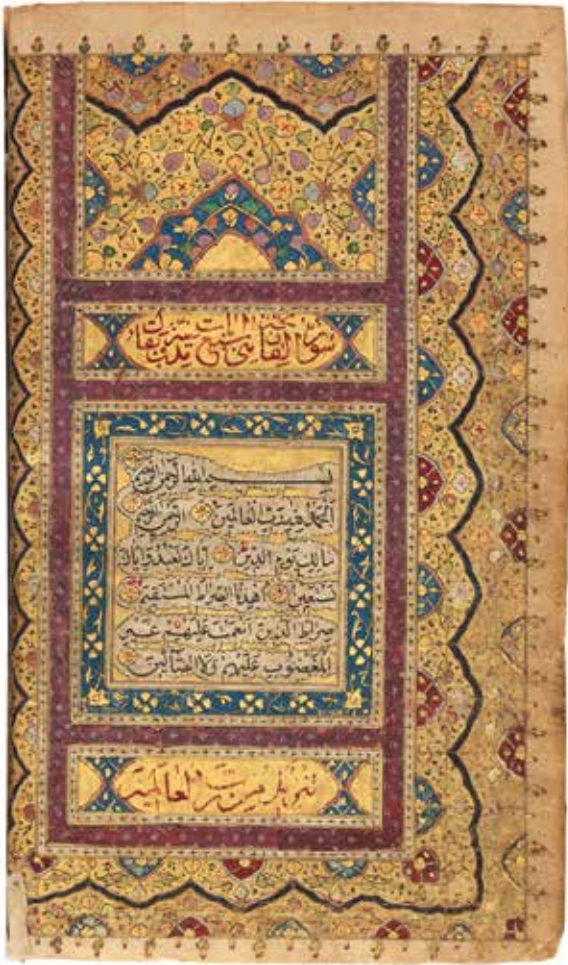 سورة
بسم الله الرحمن الرحيم
الحمد لله رب العالمين الرحمن الرحيم
مالك يوم الدين اياك نعبد واياك
نستعين اهدنا الصراط المستقيم
صراط الذين انعمت عليهم غير
المغضوب عليهم ولا الضالين
تنزيل من رب العالمين